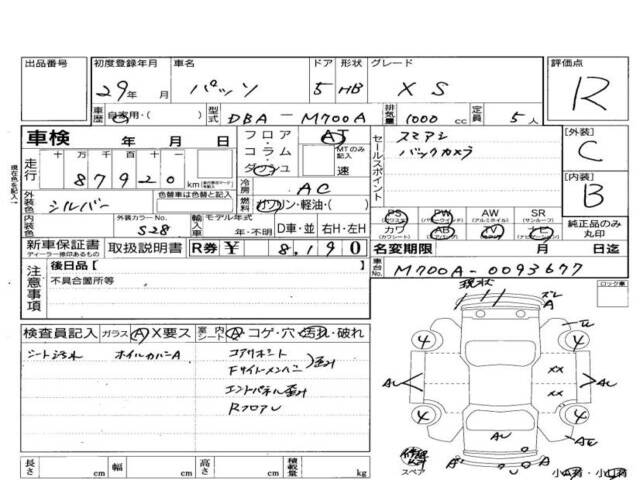 出品番号
初度登録年月
29年 月
車名
パッソ
ドア
5
形状
HB
グレード
X S
評価点
R
車歴
自家用・( )
型式
DBA - M700A
排気量
1000 cc
定員
5 人
車検 年 月 日
フロア
コラム
ダッシュ
AT
MTのみ記入
速
セールスポイント
スマアシ
バックカメラ
[外装]
C
[内装]
B
現在色を記入→
走行
十万 万 千 百 十 一
8 7 9 2 0 km
冷房
AC
外装色
シルバー
色替車は色替と記入
燃料
ガソリン・軽油・( )
内装色
外装カラーNo.
S28
輸入車
モデル年式
年・不明
D車・並
右H・左H
PS
(パワステ)
PW
(パワーウィンドウ)
AW
(アルミホイル)
SR
(サンルーフ)
カワ
(カワシート)
AB
(エアバッグ)
TV
ナビ
純正品のみ
丸印
新車保証書
ディーラー捺印あるもの
取扱説明書
R券 ¥ 8,190
名変期限 月 日迄
注意事項
後日品[ ]
不具合箇所等
車台No.
M700A-0093677
現状
ズレ
A
ロック車
検査員記入
ガラス Ⓐ X要ス
室内 シート Ⓐ・コゲ・穴・汚れ・破れ
シート汚れ
ホイルカバーA
コアサポート
Fサイドメンバー
歪み
エンドパネル歪み
RフロアU
4 4
AU
XX
XX
AU
4 4
AU
修復歴
スペア
A
A
長さ cm
幅 cm
高さ cm
積載量 kg